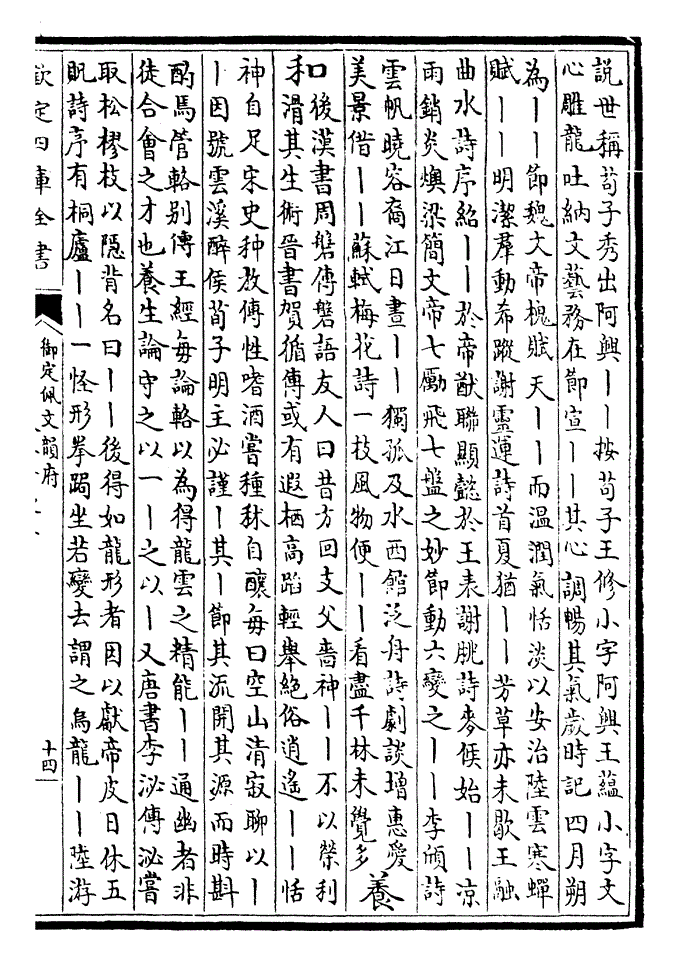 說世稱荀子秀出阿興丨丨按荀子王修小字阿興王蘊小字文
心雕龍吐納文藝務在節宣丨丨其心調暢其氣歲時記四月朔
為丨丨節魏文帝槐賦天丨丨而溫潤氣恬淡以安治陸雲寒蟬
賦丨丨明潔羣動希蹤謝靈運詩首夏猶丨丨芳草亦未歇王融
曲水詩序紹丨丨於帝猷聯顯懿於王表謝朓詩麥候始丨丨凉
雨銷炎燠梁簡文帝七勵飛七盤之妙節動六變之丨丨李頎詩
雲帆曉容裔江日晝丨丨獨孤及水西館泛舟詩劇談增惠愛
美景借丨丨蘇軾梅花詩一枝風物便丨丨看盡千林未覺多
養
和
後漢書周磐傳磐語友人曰昔方回支父嗇神丨丨不以榮利
滑其生術晉書賀循傳或有遐栖高蹈輕舉絕俗逍遙丨丨恬
神自足宋史种放傳性嗜酒嘗種秫自釀每曰空山清寂聊以丨
丨因號雲溪醉侯荀子明主必謹丨其丨節其流開其源而時斟
酌焉管輅别傳王經每論輅以為得龍雲之精能丨丨通幽者非
徒合會之才也養生論守之以一丨之以丨又唐書李泌傳泌嘗
取松樛枝以隱背名曰丨丨後得如龍形者因以獻帝皮日休五
貺詩序有桐廬丨丨一怪形拳跼坐若變去謂之烏龍丨丨陸游
欽定四庫全書
御定佩文韻府
十四